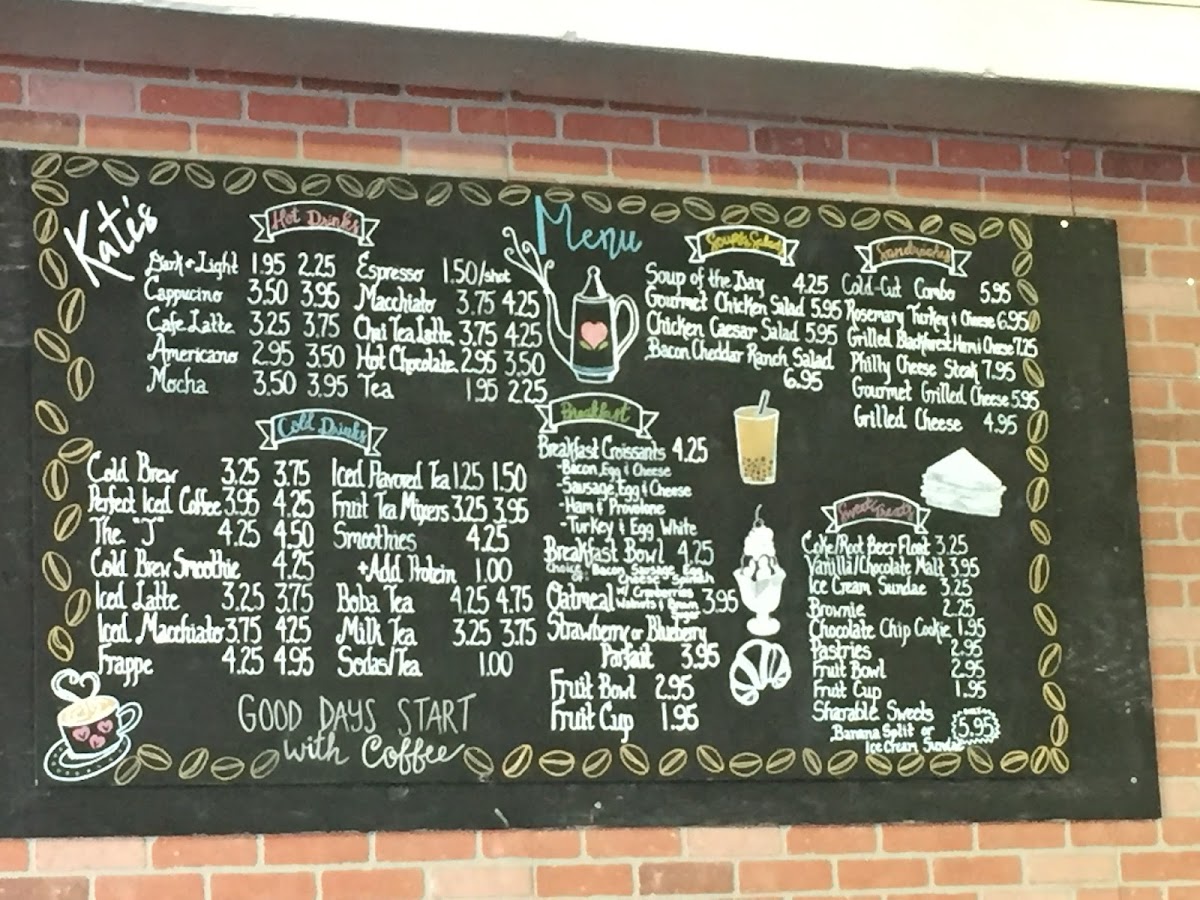 Kate's
Menu
Hot Drinks
Dark + Light 1.95 2.25
Cappucino 3.50 3.95
Cafe Latte 3.25 3.75
Americano 2.95 3.50
Mocha 3.50 3.95
Espresso 1.50/shot
Macchiato 3.75 4.25
Chai Tea Latte 3.75 4.25
Hot Chocolate 2.95 3.50
Tea 1.95 2.25
Cold Drinks
Cold Brew 3.25 3.75
Perfect Iced Coffee 3.95 4.25
The "J" 4.25 4.50
Cold Brew Smoothie 4.25
Iced Latte 3.25 3.75
Iced Macchiato 3.75 4.25
Frappe 4.25 4.95
Iced Flavored Tea 1.25 1.50
Fruit Tea Mixers 3.25 3.95
Smoothies 4.25
+Add Protein 1.00
Boba Tea 4.25 4.75
Milk Tea 3.25 3.75
Sodas/Tea 1.00
GOOD DAYS START
with Coffee
Breakfast
Breakfast Croissants 4.25
-Bacon, Egg & Cheese
-Sausage, Egg & Cheese
-Ham & Provolone
-Turkey & Egg White
Breakfast Bowl 4.25
Choice of: Bacon, Sausage, Egg
Cheese, Spinach
Oatmeal w/ Cranberries
Walnuts & Brown
Sugar 3.95
Strawberry or Blueberry
Parfait 3.95
Fruit Bowl 2.95
Fruit Cup 1.95
Soup & Salad
Soup of the Day 4.25
Gourmet Chicken Salad 5.95
Chicken Caesar Salad 5.95
Bacon Cheddar Ranch Salad
6.95
Sandwiches
Cold-Cut Combo 5.95
Rosemary Turkey & Cheese 6.95
Grilled Blackforest Ham & Cheese 7.25
Philly Cheese Steak 7.95
Gourmet Grilled Cheese 5.95
Grilled Cheese 4.95
Sweet Treats
Coke/Root Beer Float 3.25
Vanilla/Chocolate Malt 3.95
Ice Cream Sundae 3.25
Brownie 2.25
Chocolate Chip Cookie 1.95
Pastries 2.95
Fruit Bowl 2.95
Fruit Cup 1.95
Sharable Sweets
Banana Split or
Ice Cream Sundae
5.95